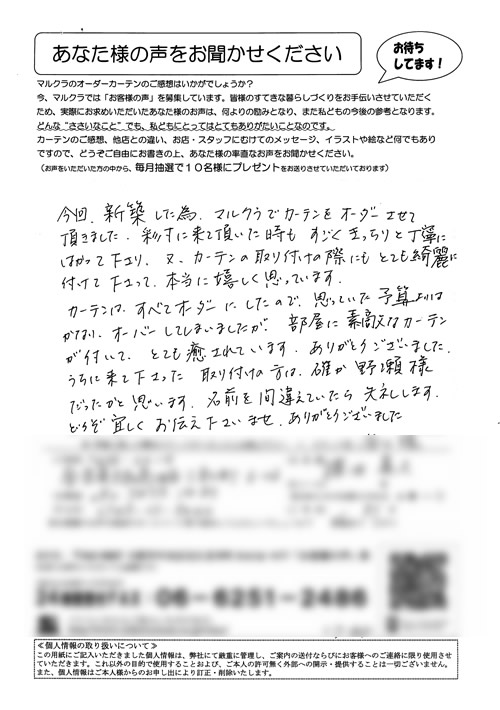 あなた様の声をお聞かせください
お待ち
してます！
マルクラのオーダーカーテンのご感想はいかがでしょうか？
今、マルクラでは「お客様の声」を募集しています。皆様のすてきな暮らしづくりをお手伝いさせていただく
ため、実際にお求めいただいたあなた様のお声は、何よりの励みとなり、また私どもの今後の参考となります。
どんな“ささいなこと”でも、私どもにとってはとてもありがたいことなのです。
カーテンのご感想、他店との違い、お店・スタッフにむけてのメッセージ、イラストや絵など何でもあり
ですので、どうぞご自由にお書きの上、あなた様の率直なお声をお聞かせください。
（お声をいただいた方の中から、毎月抽選で１０名様にプレゼントをお送りさせていただいております）
今回、新築した為、マルクラでカーテンをオーダーさせて
頂きました。彩寸に来て頂いた時も すごくきっちりと丁寧に
はかって下さり、又、カーテンの取り付けの際にも とても綺麗に
付けて下さって、本当に嬉しく思っています。
カーテンは、すべてオーダーにしたので、思っていた予算よりは
かなり オーバーしてしまいましたが、部屋に素敵なカーテン
が付いて、とても癒されています。ありがとうございました。
うちに来て下さった 取り付けの方は、確か 野瀬様
だったかと思います。名前を間違えていたら 失礼します。
どうぞ宜しくお伝え下さいませ。ありがとうございました
06-6251-2486
≪個人情報の取り扱いについて≫
この用紙にご記入いただきました個人情報は、弊社にて厳重に管理し、ご案内の送付ならびにお客様へのご連絡に限り使用させ
ていただきます。これ以外の目的で使用することおよび、ご本人の許可無く外部への開示・提供することは一切ございません。
また、個人情報はご本人様からのお申し出により訂正・削除いたします。